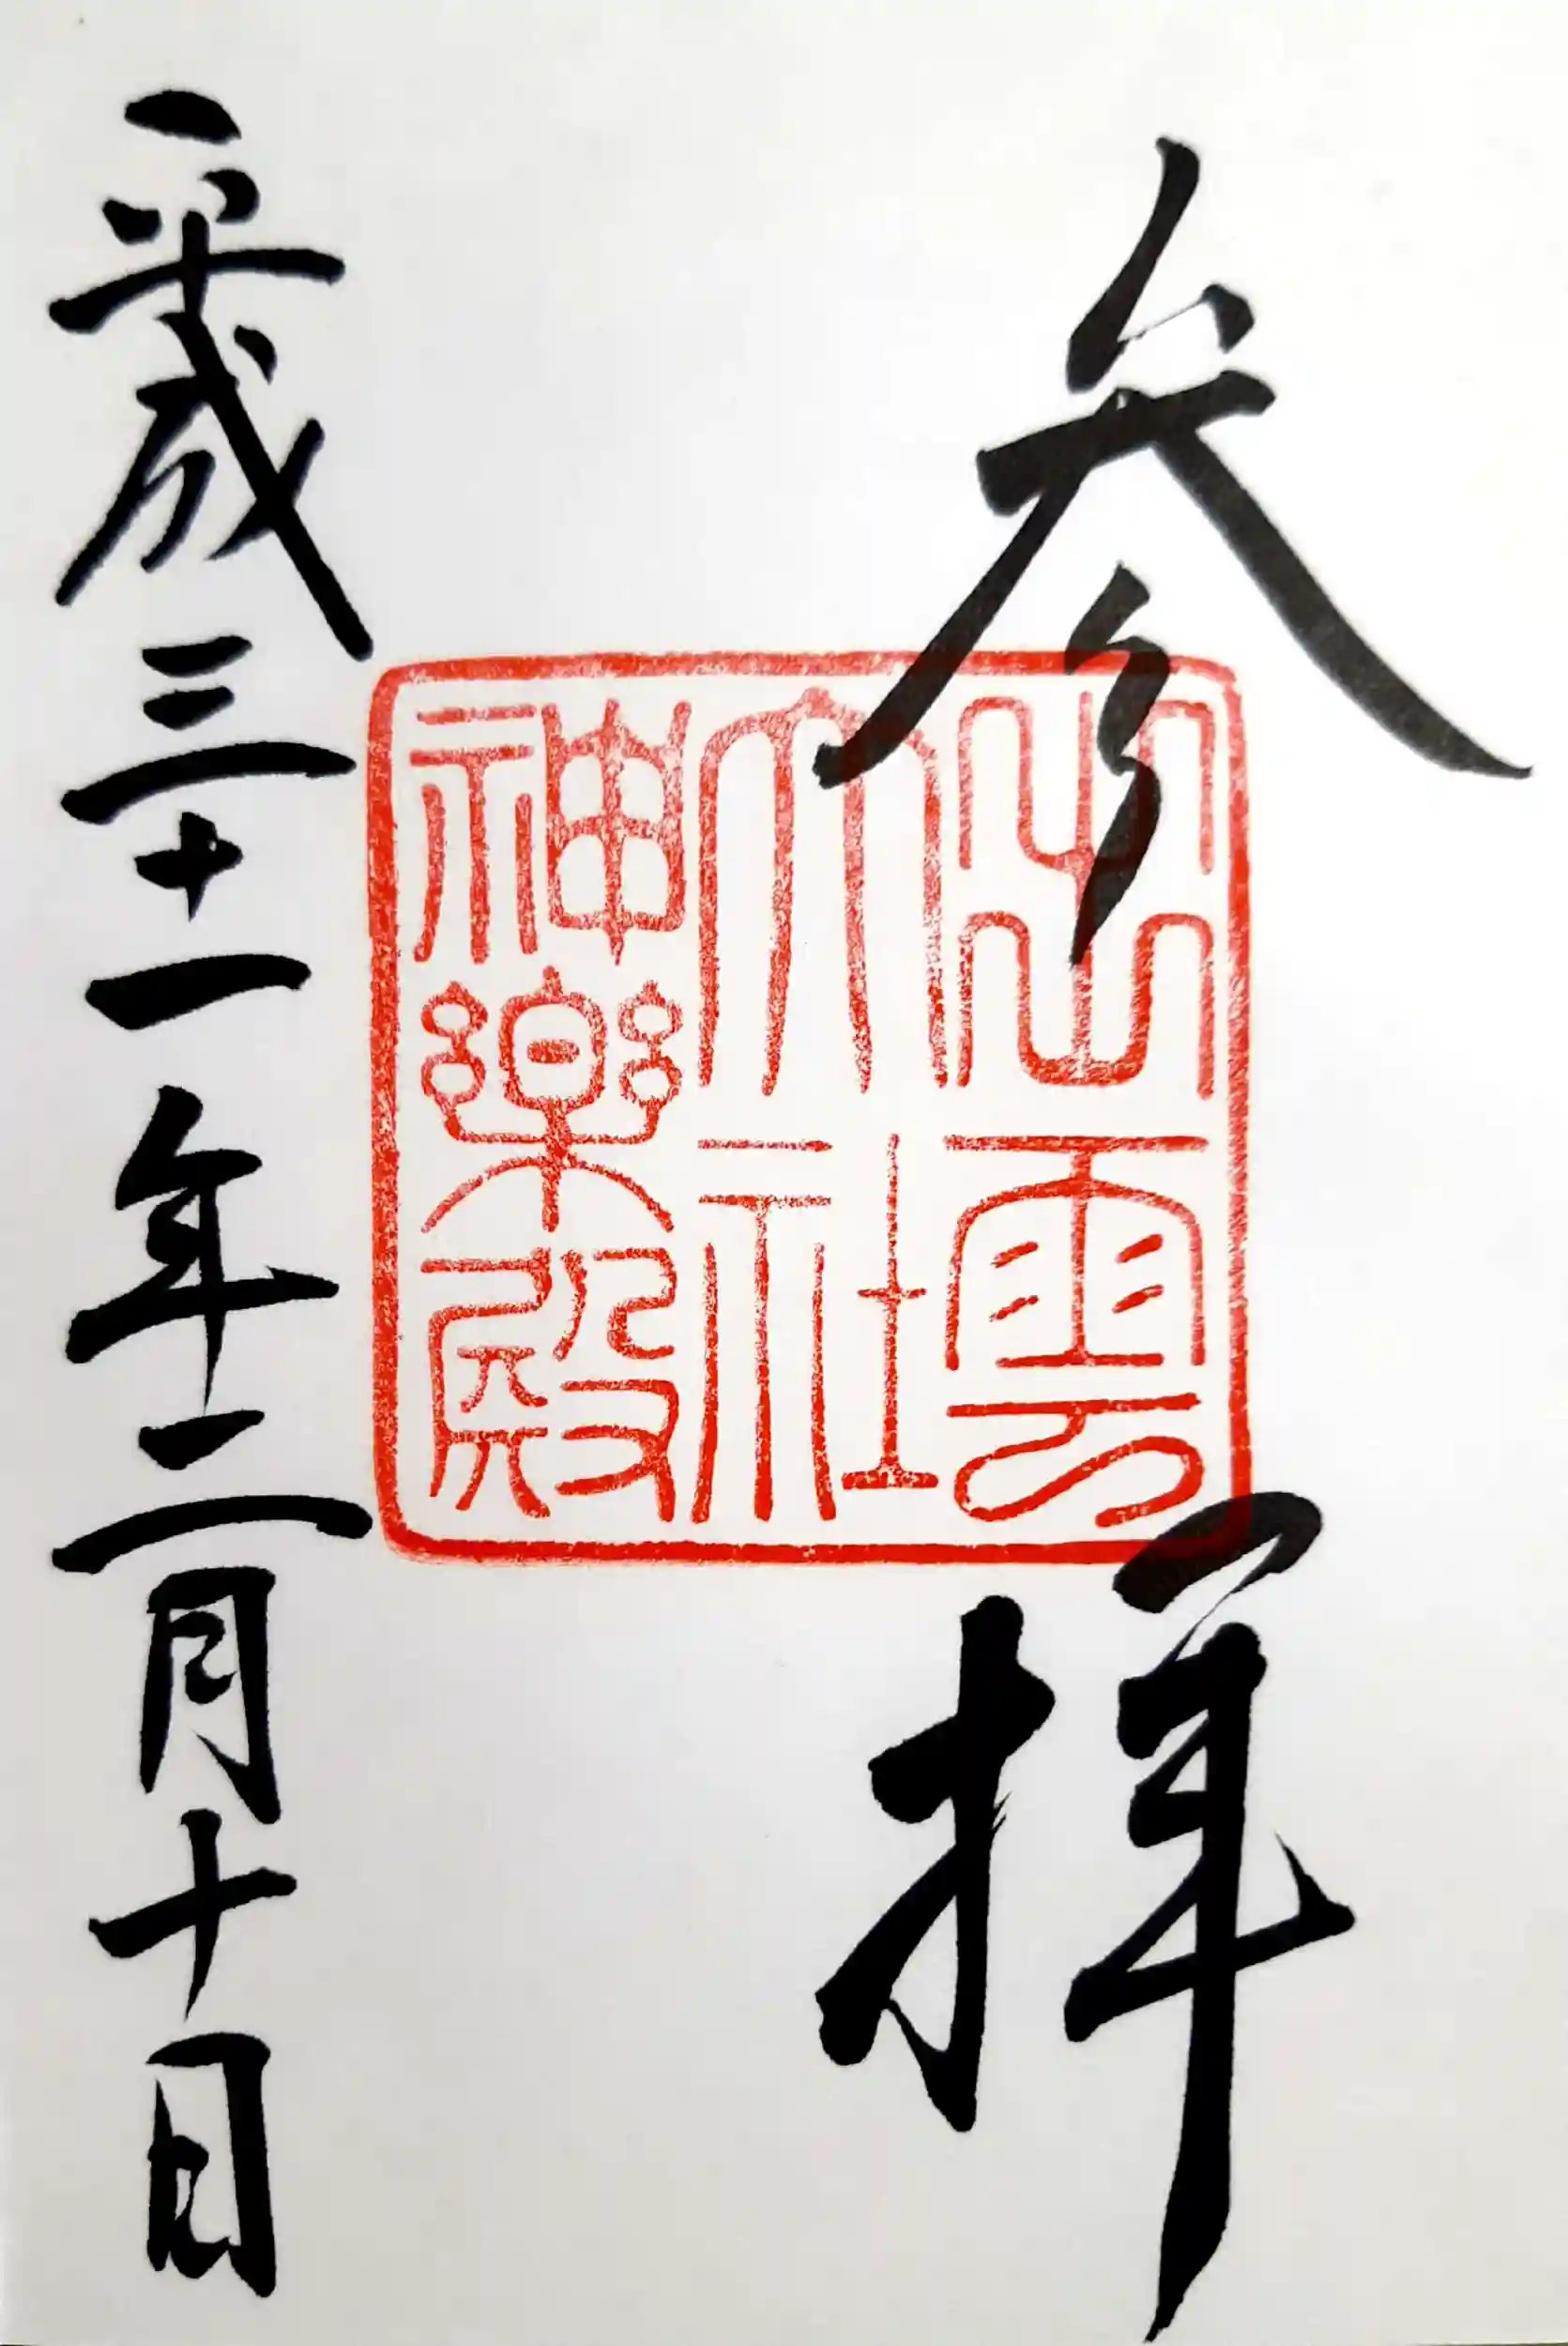 参拝
出雲
大社
神楽殿
平成三十一年二月十日